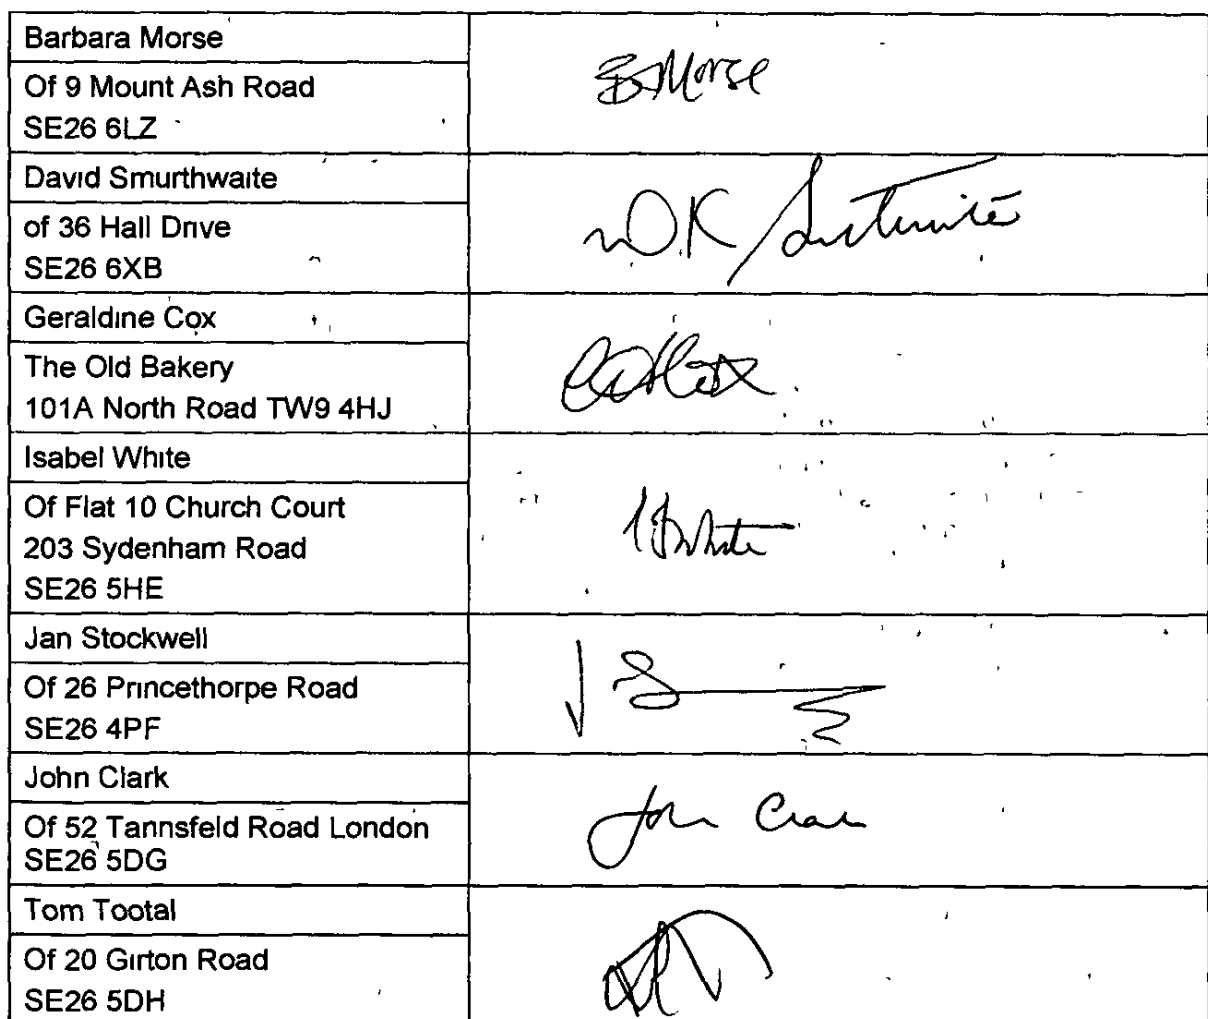 Barbara Morse
Of 9 Mount Ash Road
SE26 6LZ
B Morse
David Smurthwaite
of 36 Hall Drive
SE26 6XB
Geraldine Cox
The Old Bakery
101A North Road TW9 4HJ
Isabel White
Of Flat 10 Church Court
203 Sydenham Road
SE26 5HE
White
Jan Stockwell
Of 26 Princethorpe Road
SE26 4PF
John Clark
Of 52 Tannsfeld Road London
SE26 5DG
John
Tom Tootal
Of 20 Girton Road
SE26 5DH